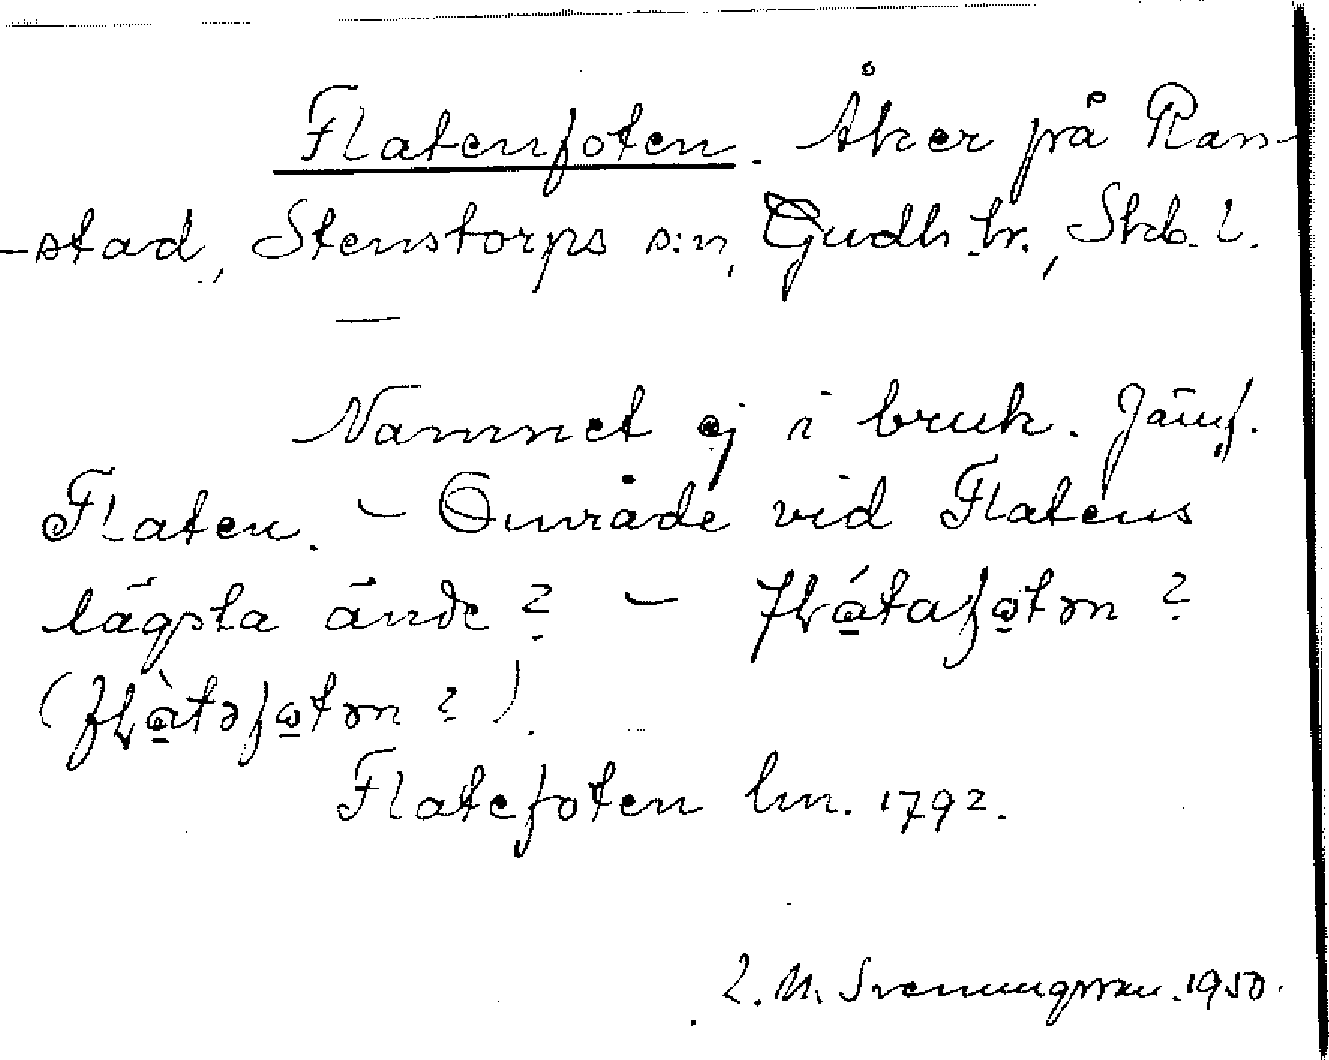 Flatenfoten. Åker på Ran-
-stad, Stenstorps s:n, Gudh. hr., Skb. l.
—
Namnet ej i bruk. Jämf.
Flaten. – Område vid Flatens
lägsta ände? –
Flatefoten lm. 1792.
L. M. Svenungsson. 1950.